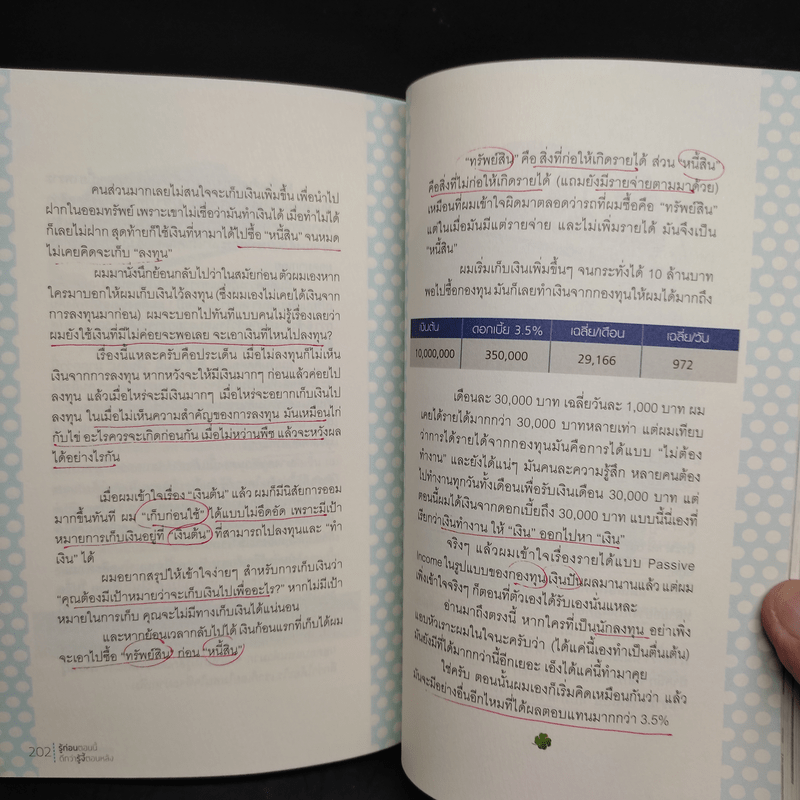 คนส่วนมากเลยไม่สนใจจะเก็บเงินเพิ่มขึ้น เพื่อนำไป
ฝากในออมทรัพย์ เพราะเขาไม่เชื่อว่ามันทำเงินได้ เมื่อทำไม่ได้
ก็เลยไม่ฝาก สุดท้ายก็ใช้เงินที่หามาได้ไปซื้อ “หนี้สิน” จนหมด
ไม่เคยคิดจะเก็บ “ลงทุน”
ผมมานั่งนึกย้อนกลับไปว่าในสมัยก่อน ตัวผมเองหาก
ใครมาบอกให้ผมเก็บเงินไว้ลงทุน (ซึ่งผมเองไม่เคยได้เงินจาก
การลงทุนมาก่อน) ผมจะบอกไปทันทีแบบคนไม่รู้เรื่องเลยว่า
ผมยังใช้เงินที่มีไม่ค่อยจะพอเลย จะเอาเงินที่ไหนไปลงทุน?
เรื่องนี้แหละครับคือประเด็น เมื่อไม่ลงทุนก็ไม่เห็น
เงินจากการลงทุน หากหวังจะให้มีเงินมากๆ ก่อนแล้วค่อยไป
ลงทุน แล้วเมื่อไหร่จะมีเงินมากๆ เมื่อไหร่จะอยากเก็บเงินไป
ลงทุน ในเมื่อไม่เห็นความสำคัญของการลงทุน มันเหมือนไก่
กับไข่ อะไรควรจะเกิดก่อนกัน เมื่อไม่หว่านพืช แล้วจะหวังผล
ได้อย่างไรกัน
เมื่อผมเข้าใจเรื่อง “เงินต้น” แล้ว ผมก็มีนิสัยการออม
มากขึ้นทันที ผม “เก็บก่อนใช้” ได้แบบไม่อึดอัด เพราะมีเป้า
หมายการเก็บเงินอยู่ที่ “เงินต้น” ที่สามารถไปลงทุนและ “ทำ
เงิน” ได้
ผมอยากสรุปให้เข้าใจง่ายๆ สำหรับการเก็บเงินว่า
“คุณต้องมีเป้าหมายว่าจะเก็บเงินไปเพื่ออะไร?” หากไม่มีเป้า
หมายในการเก็บ คุณจะไม่มีทางเก็บเงินได้แน่นอน
และหากย้อนเวลากลับไปได้ เงินก้อนแรกที่เก็บได้ผม
จะเอาไปซื้อ “ทรัพย์สิน” ก่อน “หนี้สิน”
202 รู้ก่อนตอนนี้
ดีกว่ารู้งี้ตอนหลัง
“ทรัพย์สิน” คือ สิ่งที่ก่อให้เกิดรายได้ ส่วน “หนี้สิน”
คือสิ่งที่ไม่ก่อให้เกิดรายได้ (แถมยังมีรายจ่ายตามมาด้วย)
เหมือนที่ผมเข้าใจผิดมาตลอดว่ารถที่ผมซื้อคือ “ทรัพย์สิน”
แต่ในเมื่อมันมีแต่รายจ่าย และไม่เพิ่มรายได้ มันจึงเป็น
“หนี้สิน”
ผมเริ่มเก็บเงินเพิ่มขึ้นๆ จนกระทั่งได้ 10 ล้านบาท
พอไปซื้อกองทุน มันก็เลยทำเงินจากกองทุนให้ผมได้มากถึง
เงินต้น ดอกเบี้ย 3.5% เฉลี่ย/เดือน เฉลี่ย/วัน
10,000,000 350,000 29,166 972
เดือนละ 30,000 บาท เฉลี่ยวันละ 1,000 บาท ผม
เคยได้รายได้มากกว่า 30,000 บาทหลายเท่า แต่ผมเทียบ
ว่าการได้รายได้จากกองทุนมันคือการได้แบบ “ไม่ต้อง
ทำงาน” และยังได้แน่ๆ มันคนละความรู้สึก หลายคนต้อง
ไปทำงานทุกวันทั้งเดือนเพื่อรับเงินเดือน 30,000 บาท แต่
ตอนนี้ผมได้เงินจากดอกเบี้ยถึง 30,000 บาท แบบนี้นี่เองที่
เรียกว่าเงินทำงาน ให้ “เงิน” ออกไปหา “เงิน”
จริงๆ แล้วผมเข้าใจเรื่องรายได้แบบ Passive
Income ในรูปแบบของกองทุนเงินปันผลมานานแล้ว แต่ผม
เพิ่งเข้าใจจริงๆ ก็ตอนที่ตัวเองได้รับเองนั่นแหละ
อ่านมาถึงตรงนี้ หากใครที่เป็นนักลงทุน อย่าเพิ่ง
แอบหัวเราะผมในใจนะครับว่า (ได้แค่นี้เองทำเป็นตื่นเต้น)
มันยังมีที่ได้มากกว่านี้อีกเยอะ เอ็งได้แค่นี้ทำมาคุย
ใช่ครับ ตอนนั้นผมเองก็เริ่มคิดเหมือนกันว่า แล้ว
มันจะมีอย่างอื่นอีกไหมที่ได้ผลตอบแทนมากกว่า 3.5%